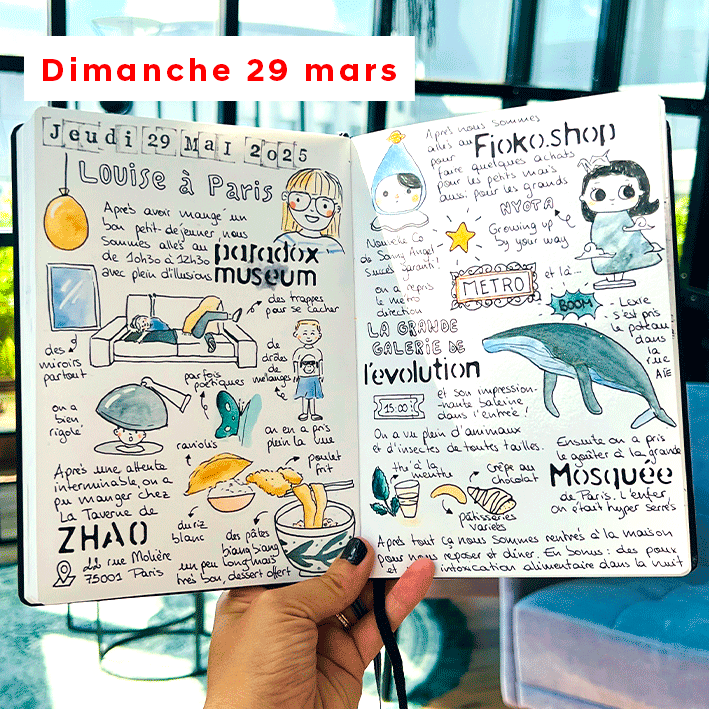 Dimanche 29 mars
Jeudi 29 MaI 2025
Louise à Paris
Après avoir mangé un
bon petit-déjeuner nous
sommes allés au paradox
de 10h30 à 12h30 museum
avec plein d'illusions
des trappes
pour se cacher
des
miroirs
partout
parfois
poétiques
de
drôles
de
mélanges
on a
bien
rigolé!
on en a pris
plein la vue
raviolis
poulet
frit
Après une attente
interminable, on a
pu manger chez
La Taverne de
ZHAO
du riz
blanc
des pâtes
biang biang
un peu long mais
très bon, dessert offert
22 rue Molière
75001 Paris
Après nous sommes
allés au Fioko.shop
pour
faire quelques achats
pour les petits mais
aussi pour les grands
NYOTA
Growing up
by your way
Nouvelle Co
de Sonny Angel
succès garanti!
on a repris
le métro
direction
METRO
et là...
BOOM
Lexie
s'est pris
le poteau
dans
la
rue
Aïe
LA GRANDE
GALERIE DE
l'evolution
15:00
et son impression-
nante baleine
dans l'entrée!
On a vu plein d'animaux
et d'insectes de toutes tailles.
Ensuite on a pris
le goûter à la grande
Mosquée
de Paris. L'enfer,
on était hyper serrés
thé à la
menthe
Crêpe au
chocolat
pâtisseries
variés
Après tout ça nous sommes rentrés à la maison
pour nous reposer et dîner. En bonus: des poux
et intoxication alimentaire dans la nuit